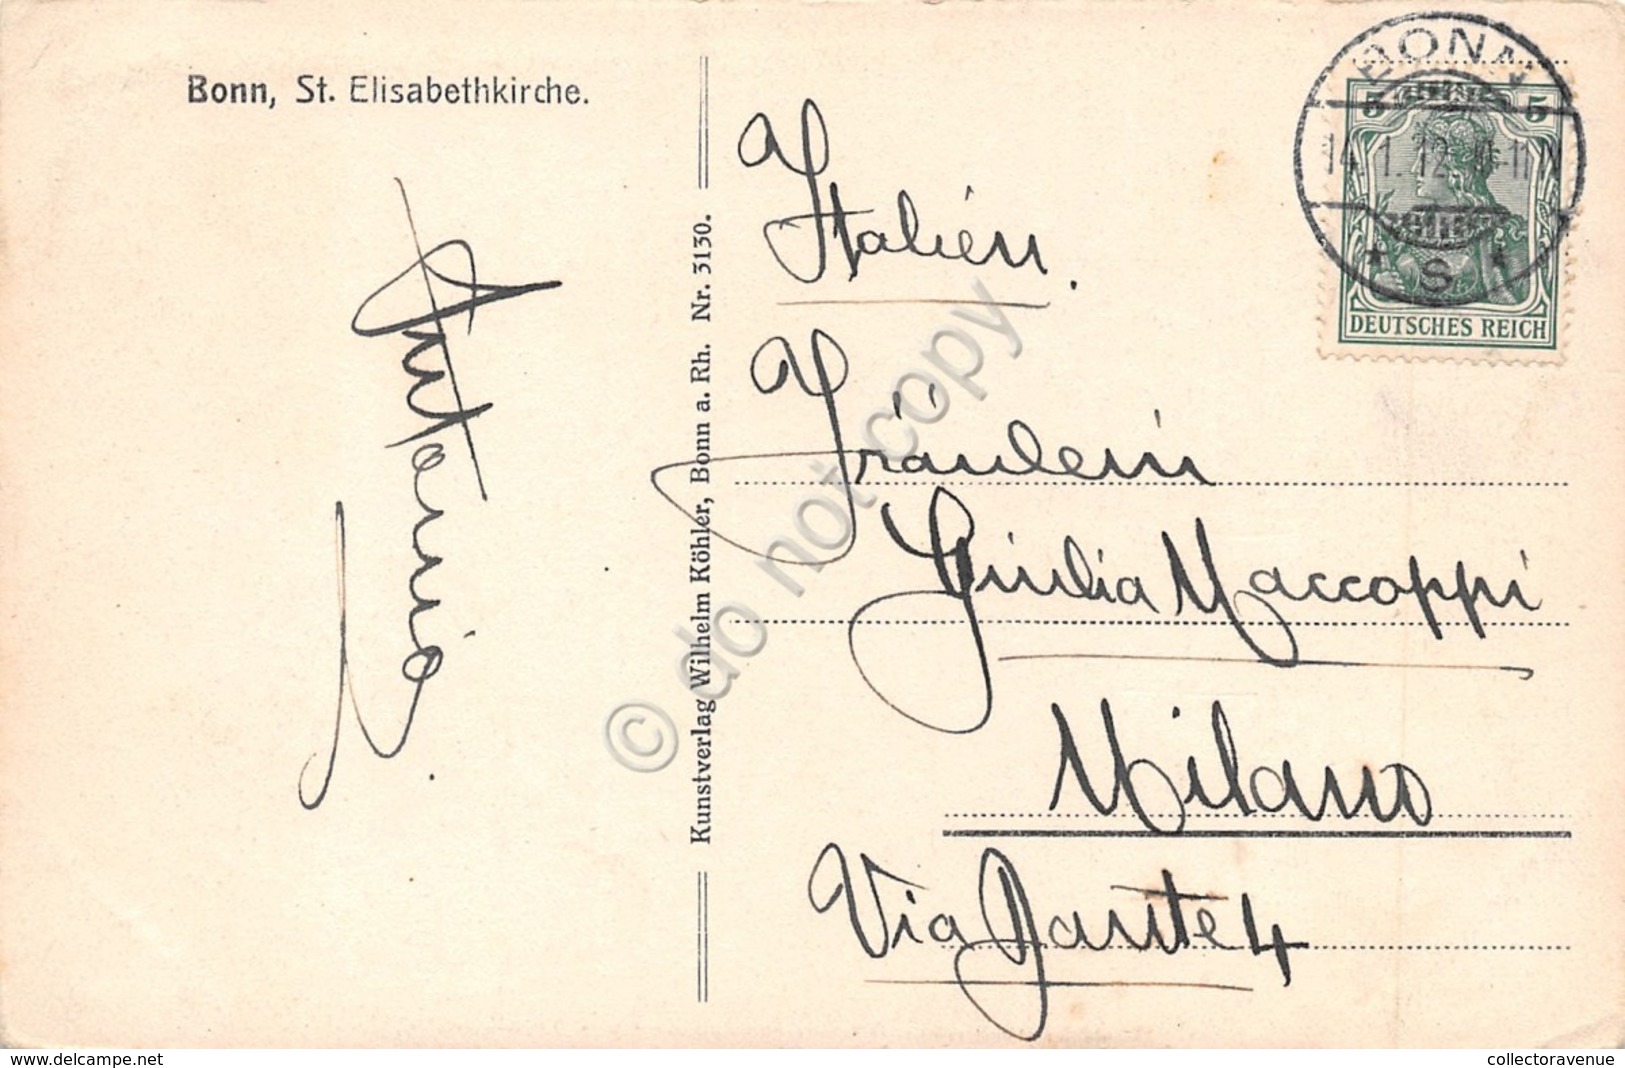 Bonn, St. Elisabethkirche.
Antonio
Kunstverlag Wilhelm Köhler, Bonn a. Rh. Nr. 3130.
Italien.
Fräulein
Giulia Maccoppi
Milano
Via Dante 4
BONN
5 5
14.1.12. 10-11 N
* S *
DEUTSCHES REICH
© do not copy
www.delcampe.net
collectoravenue